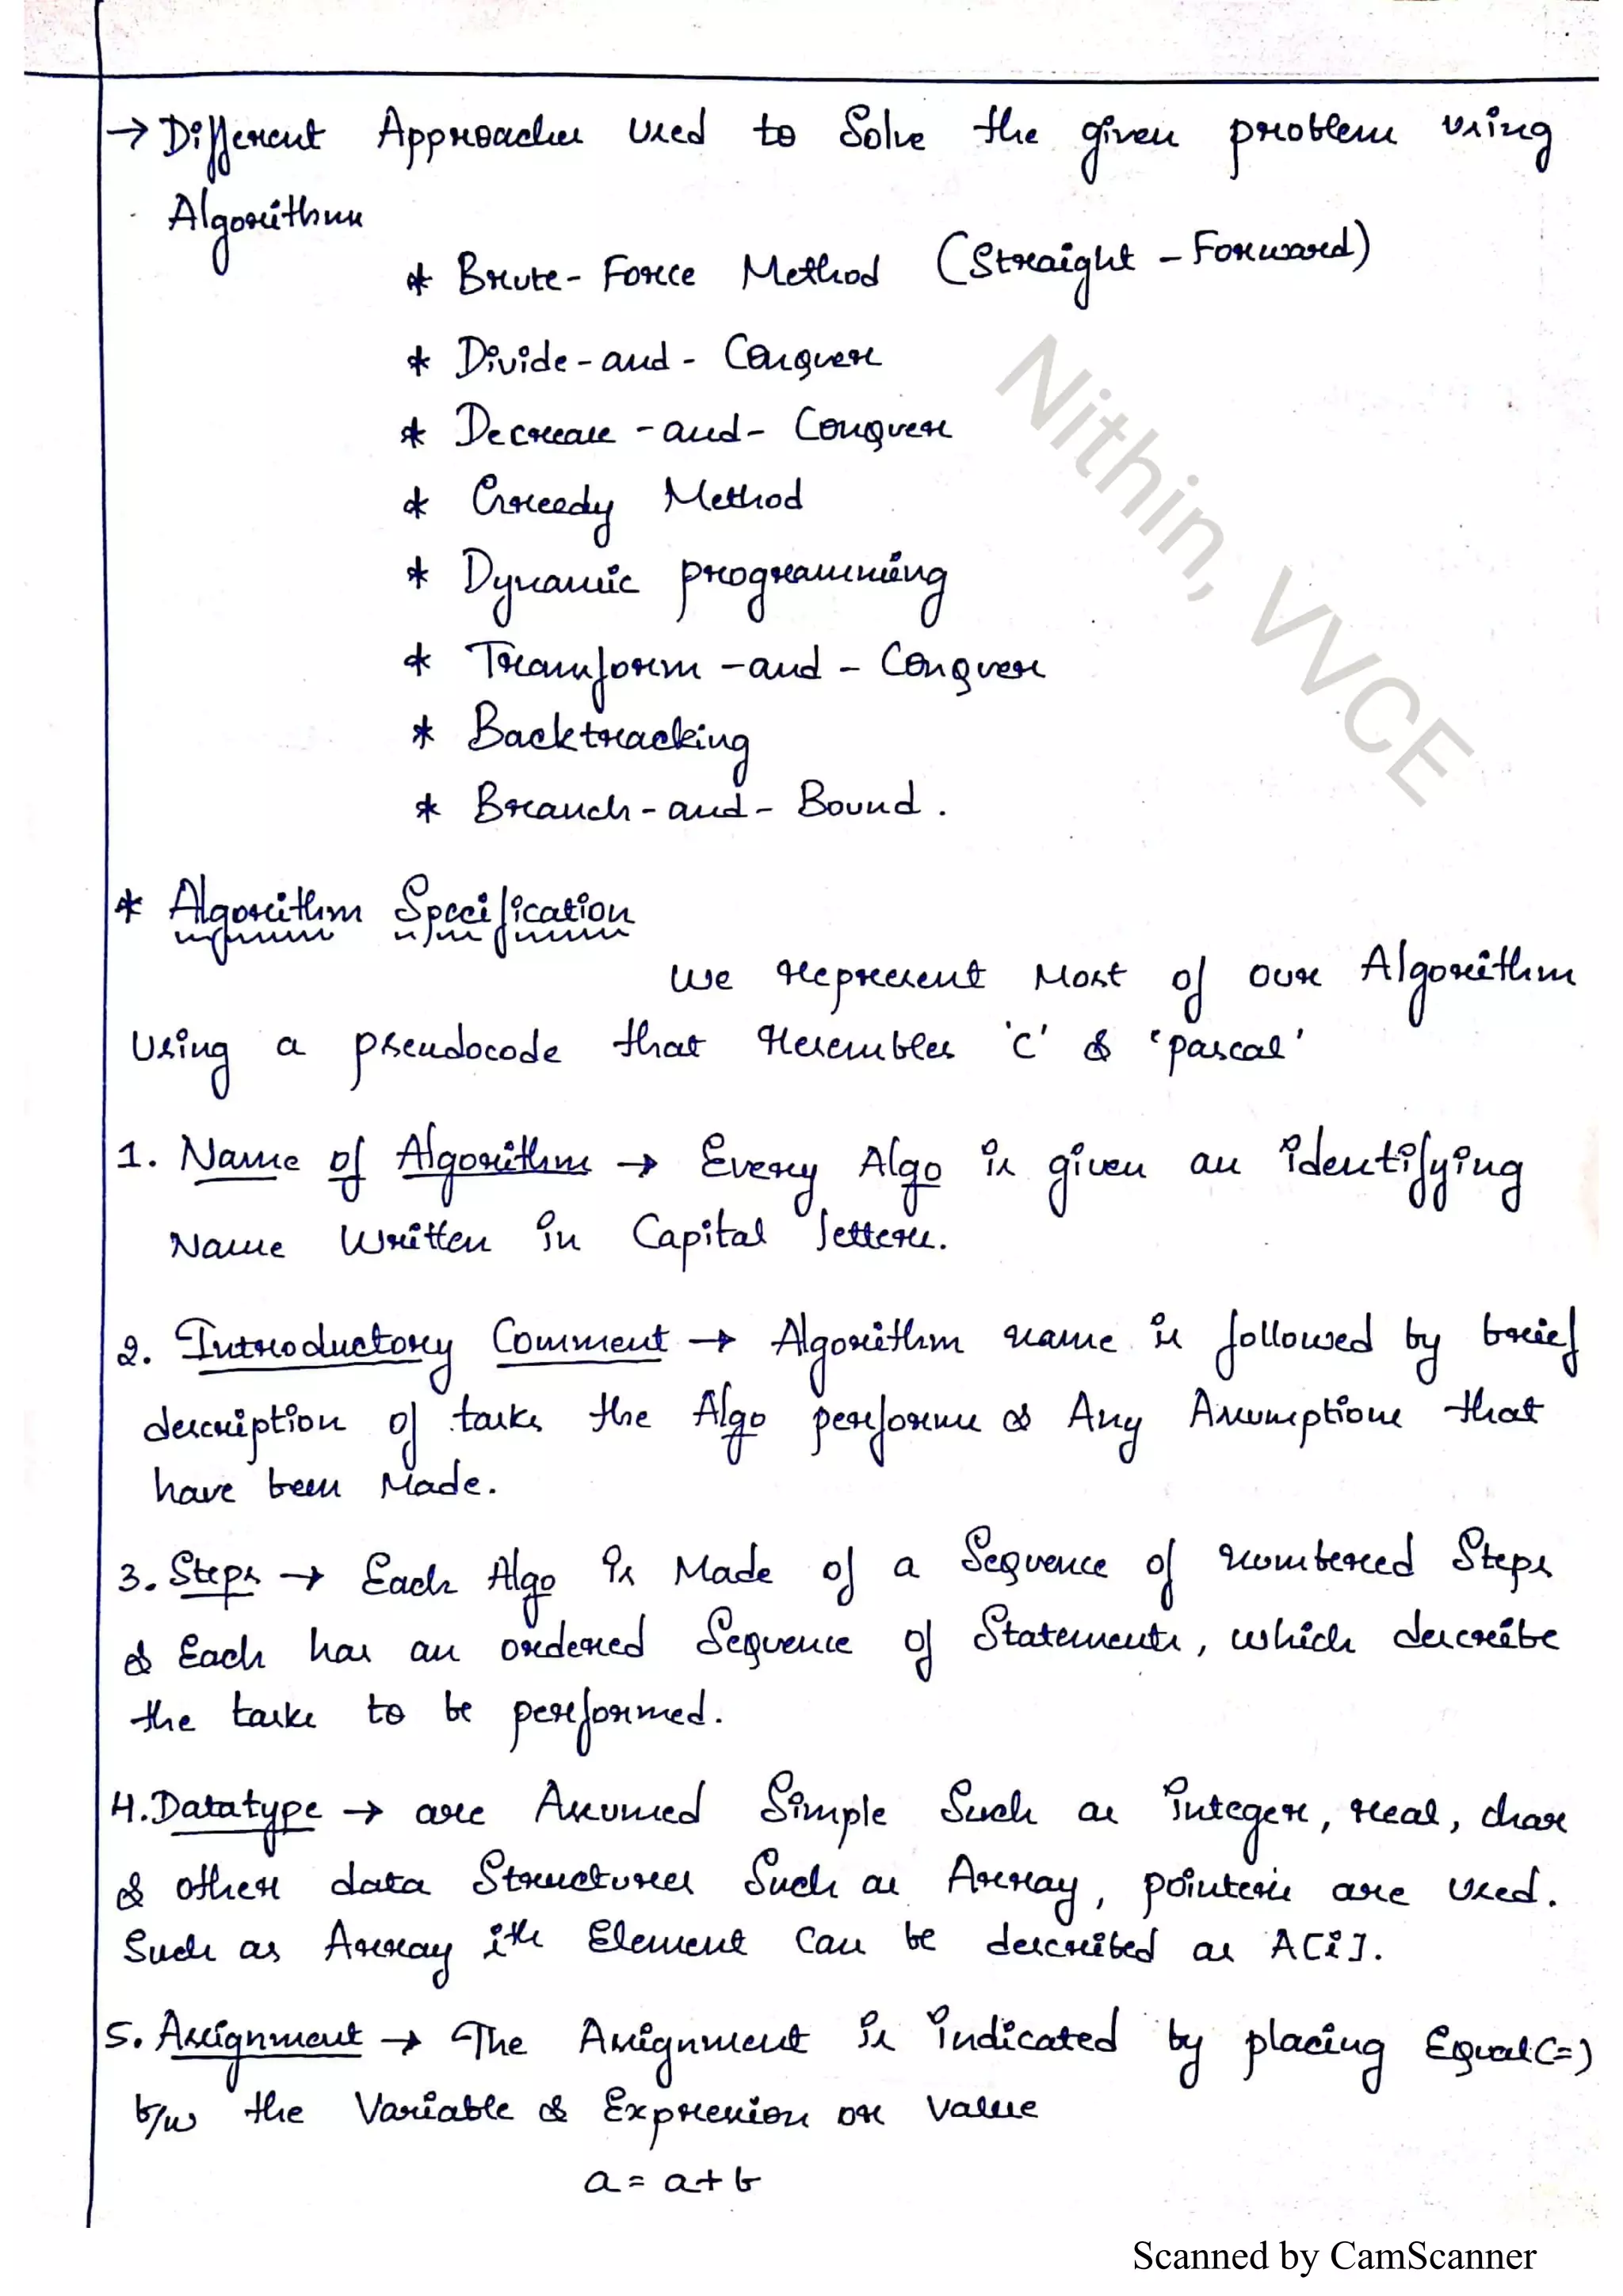 → Different Approaches Used to Solve the given problem using
Algorithms
* Brute-Force Method (Straight-Forward)
* Divide-and-Conquer
* Decrease-and-Conquer
* Greedy Method
* Dynamic programming
* Transform-and-Conquer
* Backtracking
* Branch-and-Bound.
Nithin, VVCE
* Algorithm Specification
We represent Most of our Algorithm
Using a pseudocode that resembles 'C' & 'pascal'
1. Name of Algorithm → Every Algo is given an identifying
Name Written in Capital letters.
2. Introductory Comment → Algorithm name is followed by brief
description of tasks the Algo performs & Any Assumptions that
have been Made.
3. Steps → Each Algo is Made of a Sequence of numbered Steps
& Each has an ordered Sequence of Statements, which describe
the tasks to be performed.
4. Datatype → are Assumed Simple Such as integer, real, char
& other data Structures Such as Array, pointers are used.
Such as Array ith Element Can be described as A[i].
5. Assignment → The Assignment is indicated by placing Equal(=)
b/w the Variable & Expression or Value
a = a+b
Scanned by CamScanner